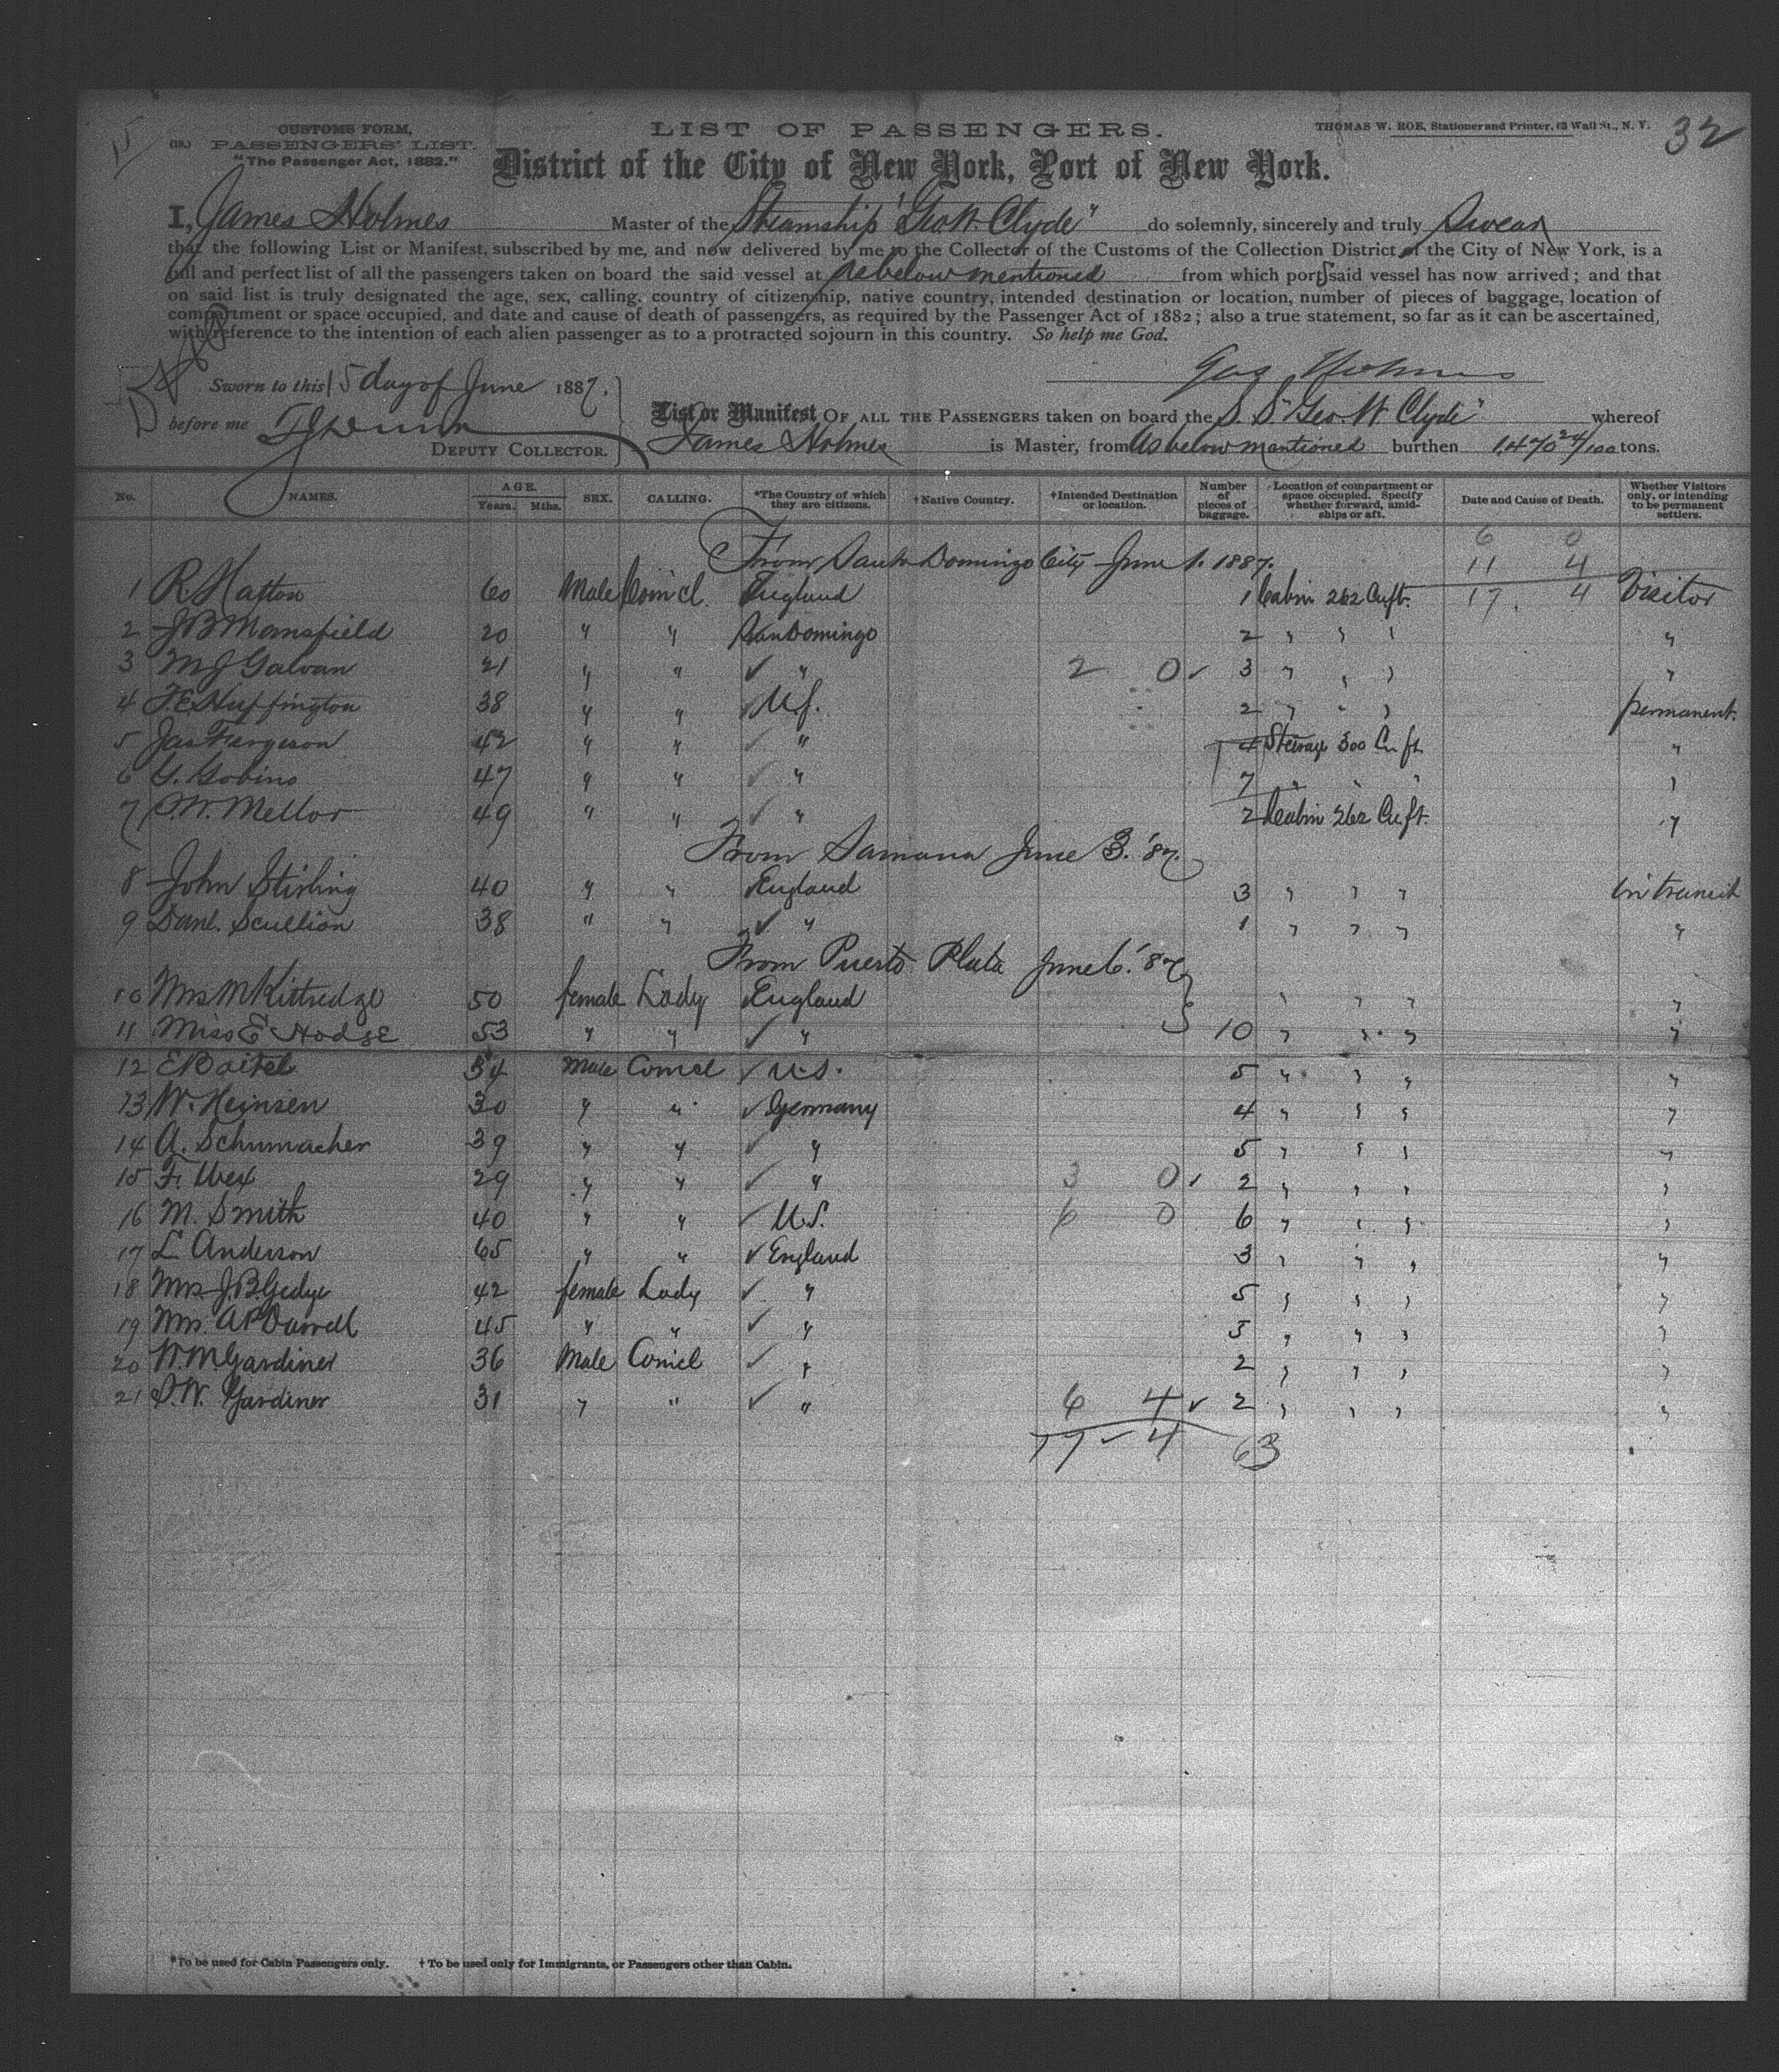 CUSTOMS FORM,
(18.) PASSENGERS' LIST.
"The Passenger Act, 1882."
LIST OF PASSENGERS.
THOMAS W. ROE, Stationer and Printer, 63 Wall St., N. Y.
32
District of the City of New York, Port of New York.
I, James Holmes Master of the Steamship "Geo W. Clyde" do solemnly, sincerely and truly Swear
that the following List or Manifest, subscribed by me, and now delivered by me to the Collector of the Customs of the Collection District of the City of New York, is a
full and perfect list of all the passengers taken on board the said vessel at as below mentioned from which ports said vessel has now arrived; and that
on said list is truly designated the age, sex, calling, country of citizenship, native country, intended destination or location, number of pieces of baggage, location of
compartment or space occupied, and date and cause of death of passengers, as required by the Passenger Act of 1882; also a true statement, so far as it can be ascertained,
with reference to the intention of each alien passenger as to a protracted sojourn in this country. So help me God.
Jas Holmes
Sworn to this 15 day of June 1887.
before me
DEPUTY COLLECTOR.
List or Manifest OF ALL THE PASSENGERS taken on board the S. S. "Geo. W. Clyde" whereof
James Holmes is Master, from as below mentioned burthen 1,470 24/100 tons.
No. NAMES. AGE. Years. Mths. SEX. CALLING. *The Country of which they are citizens. †Native Country. †Intended Destination or location. Number of pieces of baggage. Location of compartment or space occupied. Specify whether forward, amidships or aft. Date and Cause of Death. Whether Visitors only, or intending to be permanent settlers.
6 0
From Santo Domingo City June 1. 1887. 11 4
1 R. Hatton 60 Male Com'cl. England 1 Cabin 262 Cu ft. 17. 4 Visitor
2 J B Mansfield 20 " " San Domingo 2 " " " "
3 M J Galvan 21 " " ✓ " 2 0 ✓ 3 " " " "
4 F. E. Huffington 38 " " ✓ U.S. 2 " " " permanent.
5 Jas Fergeson 42 " " ✓ " 4 Steerage 300 Cu ft. "
6 G. Gobins 47 " " ✓ " 7 " " " "
7 P. W. Mellor 49 " " ✓ " 2 Cabin 262 Cu ft. "
From Samana June 3. '87.
8 John Stirling 40 " " England 3 " " " In transit
9 Danl. Scullion 38 " " ✓ " 1 " " " "
From Puerto Plata June 6. '87
10 Mrs M Kittredge 50 female Lady England " " " "
11 Miss E Hodge 53 " " ✓ " 10 " " " "
12 E Baitel 34 Male Comcl ✓ U.S. 5 " " " "
13 W. Heinsen 30 " " ✓ Germany 4 " " " "
14 A. Schumacher 39 " " ✓ " 5 " " " "
15 F. Wex 29 " " ✓ " 3 0 ✓ 2 " " " "
16 M. Smith 40 " " ✓ U.S. 6 0 6 " " " "
17 L. Anderson 65 " " ✓ England 3 " " " "
18 Mrs. J. B. Gedge 42 female Lady ✓ " 5 " " " "
19 Mrs. A P Darrell 45 " " ✓ " 3 " " " "
20 W. M Gardiner 36 Male Comcl ✓ " 2 " " " "
21 S. W. Gardiner 31 " " ✓ " 6 4 ✓ 2 " " " "
17 - 4 63
*To be used for Cabin Passengers only. †To be used only for Immigrants, or Passengers other than Cabin.